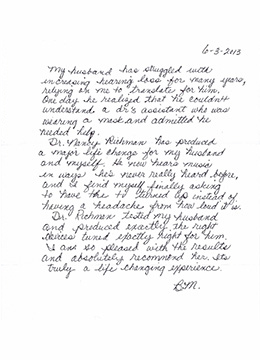 6-3-2013
My husband has struggled with
increasing hearing loss for many years,
relying on me to translate for him.
One day he realized that he couldn't
understand a dr's assistant who was
wearing a mask and admitted he
needed help.
Dr. Nancy Richman has produced
a major life change for my husband
and myself. He now hears music
in ways he's never really heard before,
and I find myself finally asking
to have the TV turned up instead of
having a headache from how loud it is.
Dr. Richman tested my husband
and produced exactly the right
devices tuned exactly right for him.
I am so pleased with the results
and absolutely recommend her. Its
truly a life changing experience.
B.M.